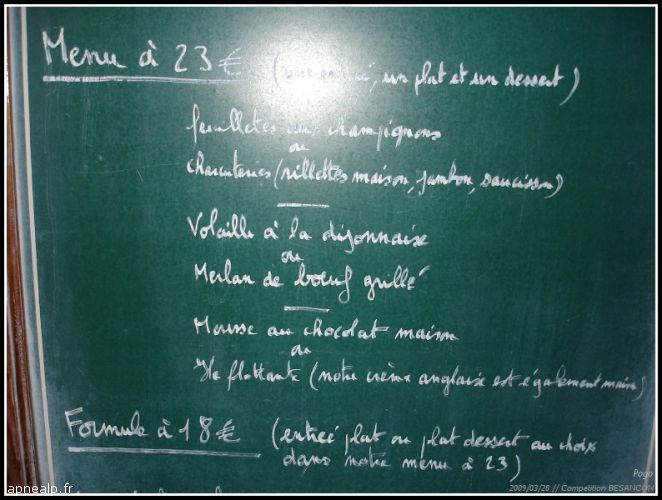 Menu à 23 € (une entrée, un plat et un dessert)
feuilletés aux champignons
ou
Charcuteries (rillettes maison, jambon, saucisson)
Volaille à la dijonnaise
ou
Merlan de boeuf grillé
Mousse au chocolat maison
ou
Ile flottante (notre crème anglaise est également maison)
Formule à 18 € (entrée plat ou plat dessert au choix
dans notre menu à 23)
Pogo
apnealp.fr
2009/03/28 // Competition BESANCON